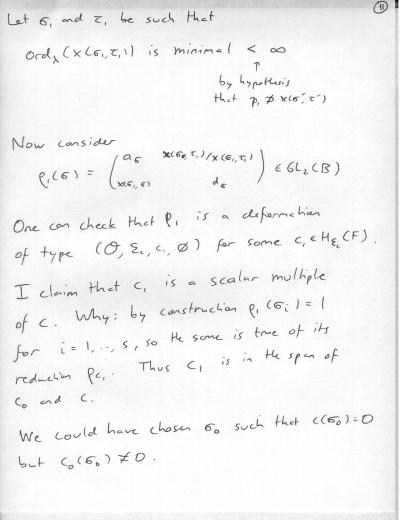 11
Let σ₁ and τ₁ be such that
ord_λ(x(σ₁,τ₁)) is minimal < ∞
↑
by hypothesis
that p₁ ∌ x(σ,τ)
Now consider
ρ₁(σ) = ( a_σ x(σ,τ₁)/x(σ₁,τ₁)
x(σ₁,σ) d_σ ) ∈ GL₂(B)
One can check that ρ₁ is a deformation
of type (O, Σ_c, c₁, ∅) for some c₁ ∈ H_Σc(F).
I claim that c₁ is a scalar multiple
of c. Why: by construction ρ₁(σᵢ) = 1
for i = 1, .., s, so the same is true of its
reduction ρ_c₁. Thus c₁ is in the span of
c₀ and c.
We could have chosen σ₀ such that c(σ₀) = 0
but c₀(σ₀) ≠ 0.